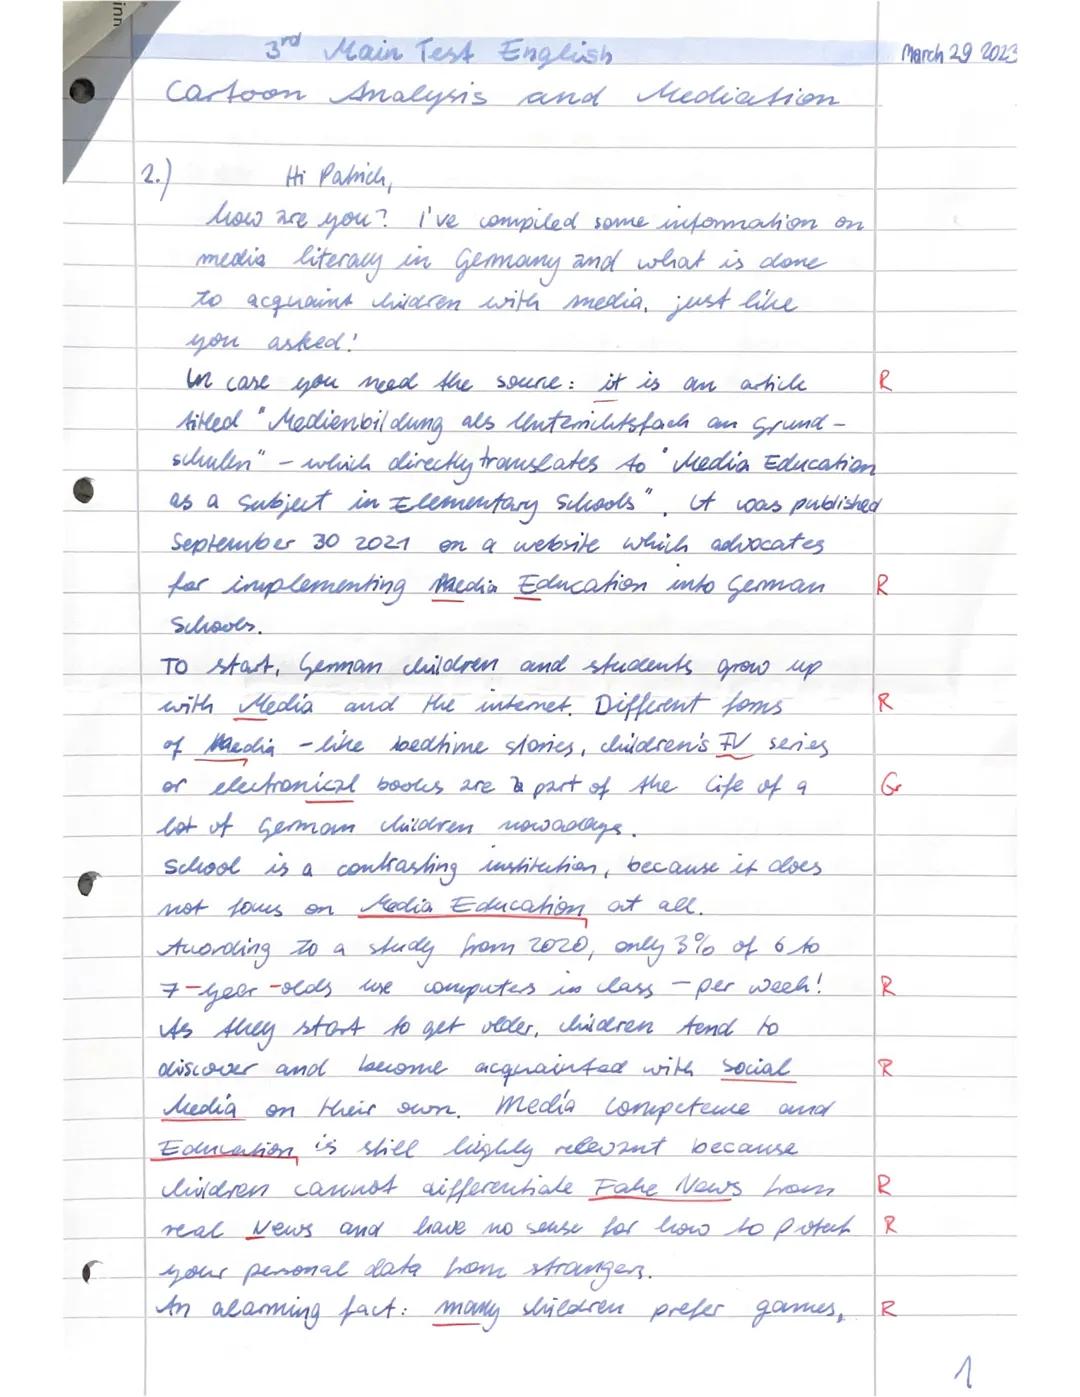 inn
3rd Main Test English March 29 2023
Cartoon Analysis and Mediation
2.) Hi Patrick,
how are you? I've compiled some information on
media literacy in Germany and what is done
to acquaint children with media, just like
you asked!
In case you need the source: it is an article R
titled "Medienbildung als Unterrichtsfach an Grund-
schulen" - which directly translates to "Media Education
as a Subject in Elementary Schools". It was published
September 30 2021 on a website which advocates
for implementing Media Education into German R
Schools.
To start, German children and students grow up
with Media and the internet. Different forms R
of Media - like bedtime stories, children's TV series
or electronical books are a part of the life of a Gr
lot of German children nowadays.
School is a contrasting institution, because it does
not focus on Media Education at all.
According to a study from 2020, only 3% of 6 to
7-year-olds use computers in class - per week! R
As they start to get older, children tend to
discover and become acquainted with Social R
Media on their own. Media Competence and
Education is still highly relevant because
children cannot differentiate Fake News from R
real News and have no sense for how to protect R
your personal data from strangers.
An alarming fact: many children prefer games, R
1